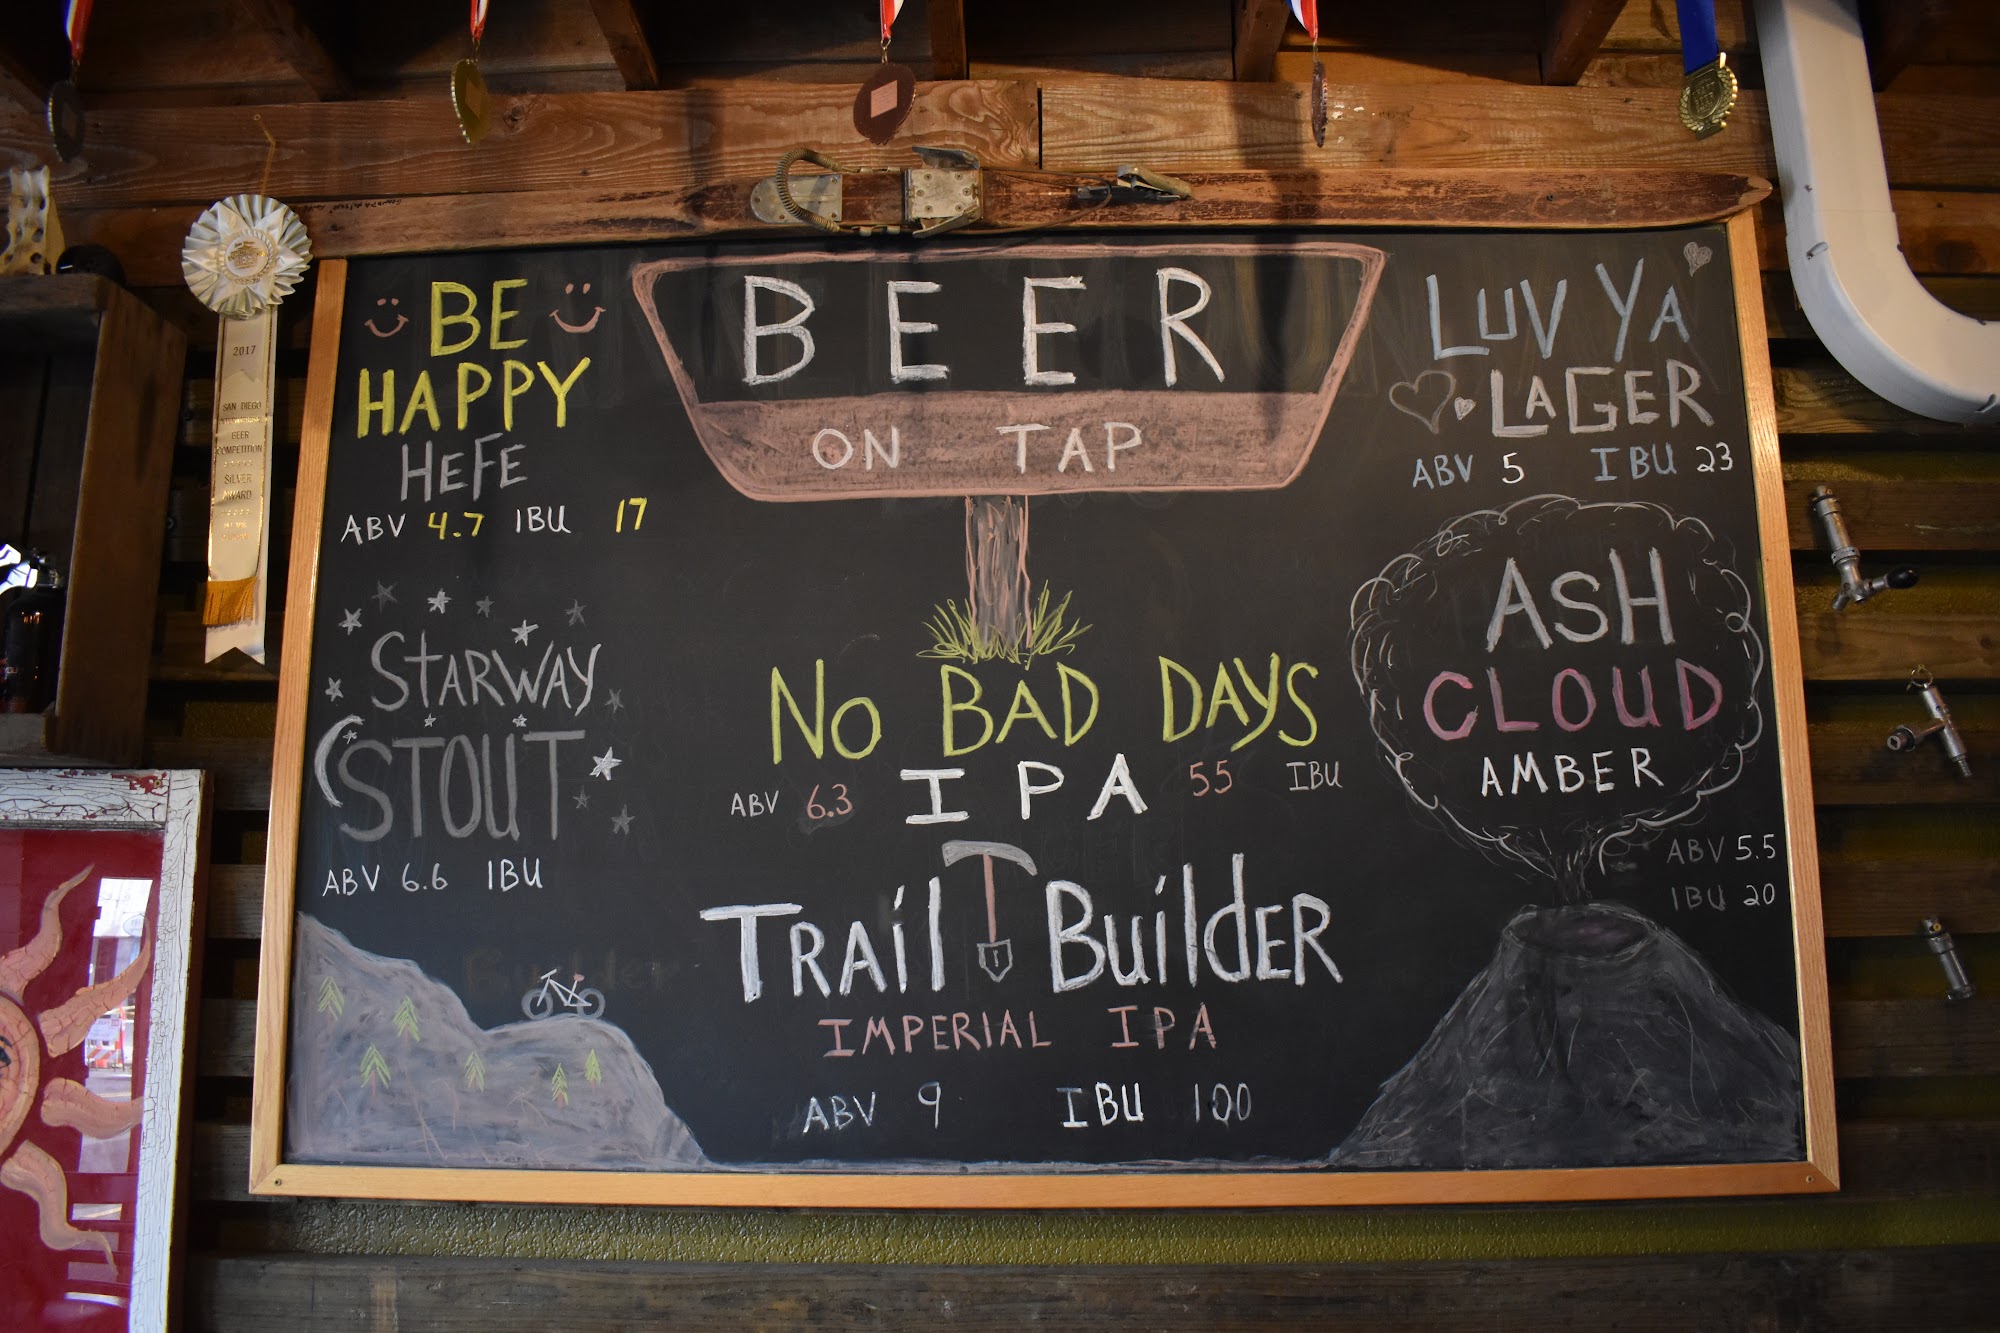 BEER
ON TAP
BE
HAPPY
HEFE
ABV 4.7 IBU 17
STARWAY
STOUT
ABV 6.6 IBU
NO BAD DAYS
ABV 6.3 IPA 55 IBU
TRAIL BUILDER
IMPERIAL IPA
ABV 9 IBU 100
LUV YA
LAGER
ABV 5 IBU 23
ASH
CLOUD
AMBER
ABV 5.5
IBU 20
2017
SAN DIEGO
BEER
COMPETITION
SILVER
AWARD